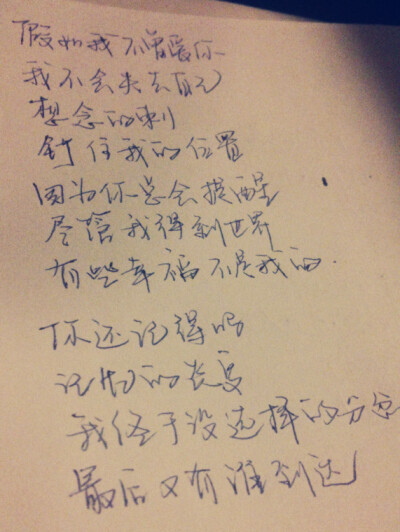 假如我不曾爱你
我不会失去自己
想念的刺
钉住我的位置
因为你总会提醒
尽管我得到世界
有些幸福不是我的.
你还记得吗
记忆的炎夏
我终于没选择的分岔
最后又有谁到达